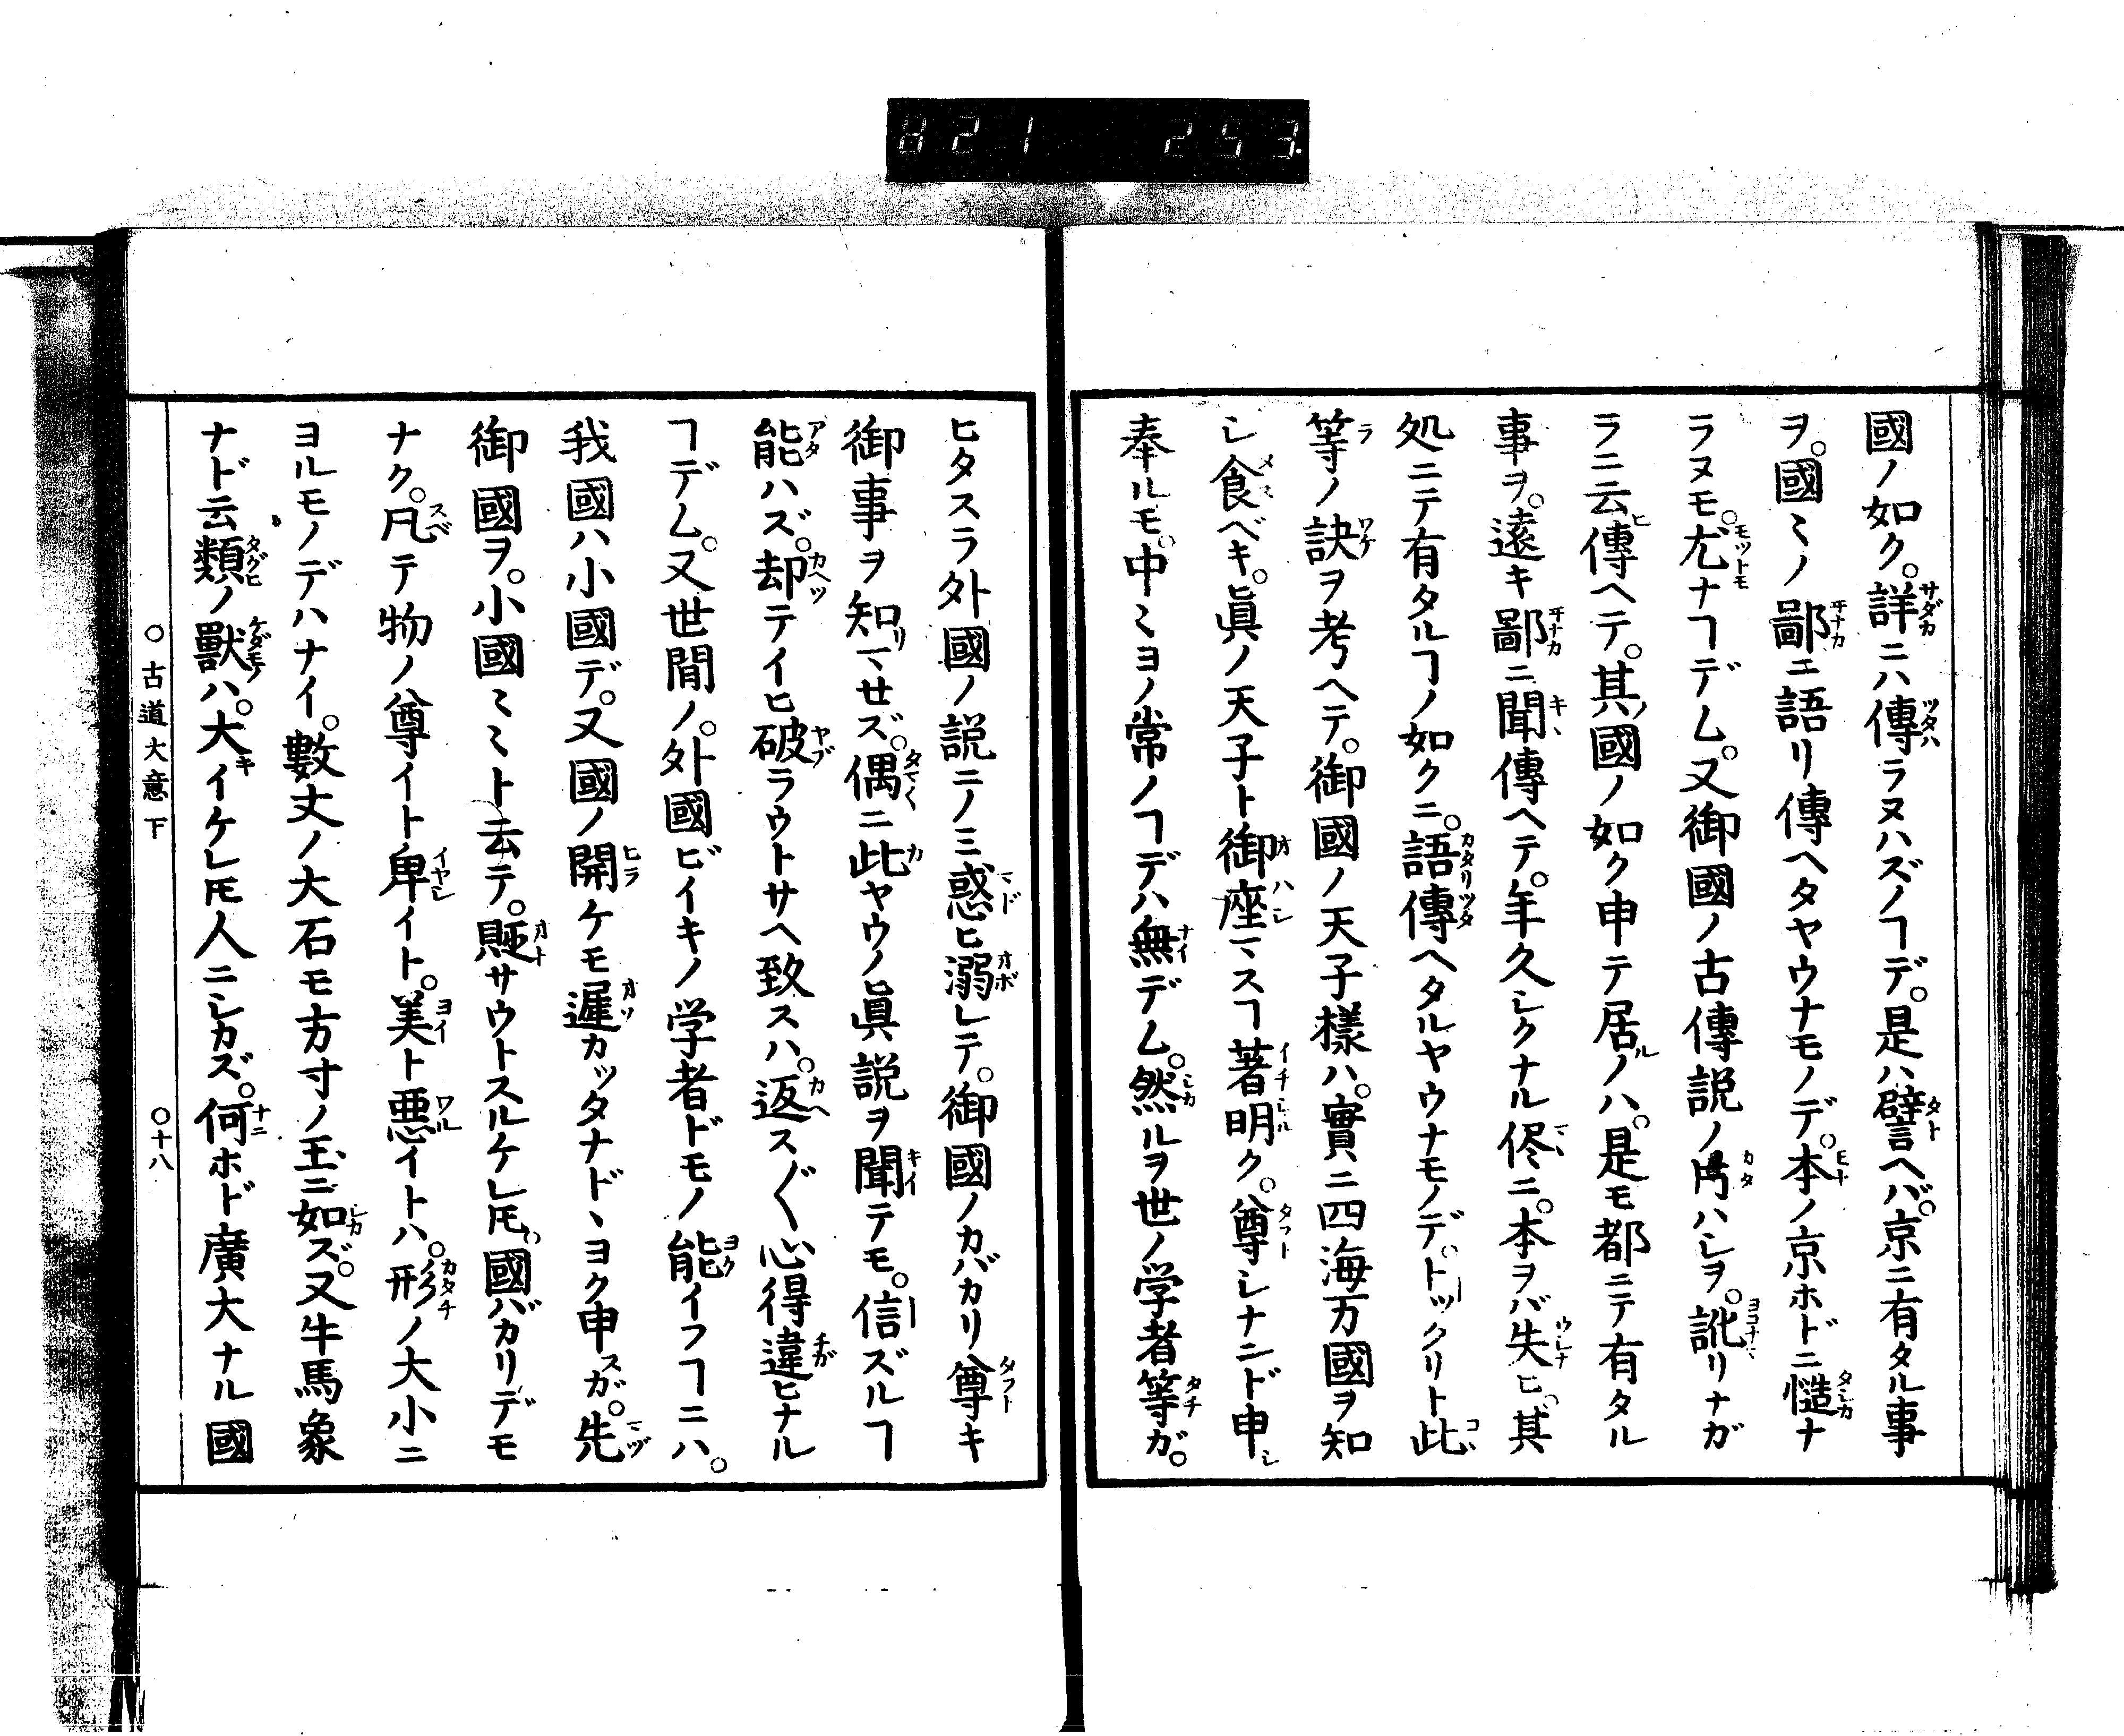 821 253
國ノ如ク。詳ニハ傳ラヌハズノヿデ。是ハ譬ヘバ。京ニ有タル事
ヲ。國〻ノ鄙エ語リ傳ヘタヤウナモノデ。本ノ京ホドニ慥ナ
ラヌモ。尤ナヿデム。又御國ノ古傳説ノ片ハシヲ。訛リナガ
ラニ云傳ヘテ。其國ノ如ク申テ居ルノハ。是モ都ニテ有タル
事ヲ。遠キ鄙ニ聞傳ヘテ。年久シクナル侭ニ。本ヲバ失ヒ。其
処ニテ有タルヿノ如クニ。語傳ヘタルヤウナモノデ。トックリト此
等ノ訣ヲ考ヘテ。御國ノ天子樣ハ。實ニ四海万國ヲ知
シ食ベキ。眞ノ天子ト御座マスヿ著明ク。尊シナンド申
奉ルモ。中〻ヨノ常ノヿデハ無デム。然ルヲ世ノ学者等ガ。
ヒタスラ外國ノ説ニノミ惑ヒ溺レテ。御國ノカバカリ尊キ
御事ヲ知リマせズ。偶ニ此ヤウノ眞説ヲ聞テモ。信ズルヿ
能ハズ。却テイヒ破ラウトサヘ致スハ。返ス〲心得違ヒナル
ヿデム。又世間ノ。外國ビイキノ学者ドモノ能イフヿニハ。
我國ハ小國デ。又國ノ開ケモ遲カッタナドヽヨク申スガ。先
御國ヲ。小國〻〻ト云テ。貶サウトスルケレ𪜈。國バカリデモ
ナク。凡テ物ノ尊イト卑イト。美ト悪イトハ。形ノ大小ニ
ヨルモノデハナイ。數丈ノ大石モ方寸ノ玉ニ如ズ。又牛馬象
ナド云類ノ獸ハ。大イケレ𪜈人ニシカズ。何ホド廣大ナル國
○古道大意下 ○十八